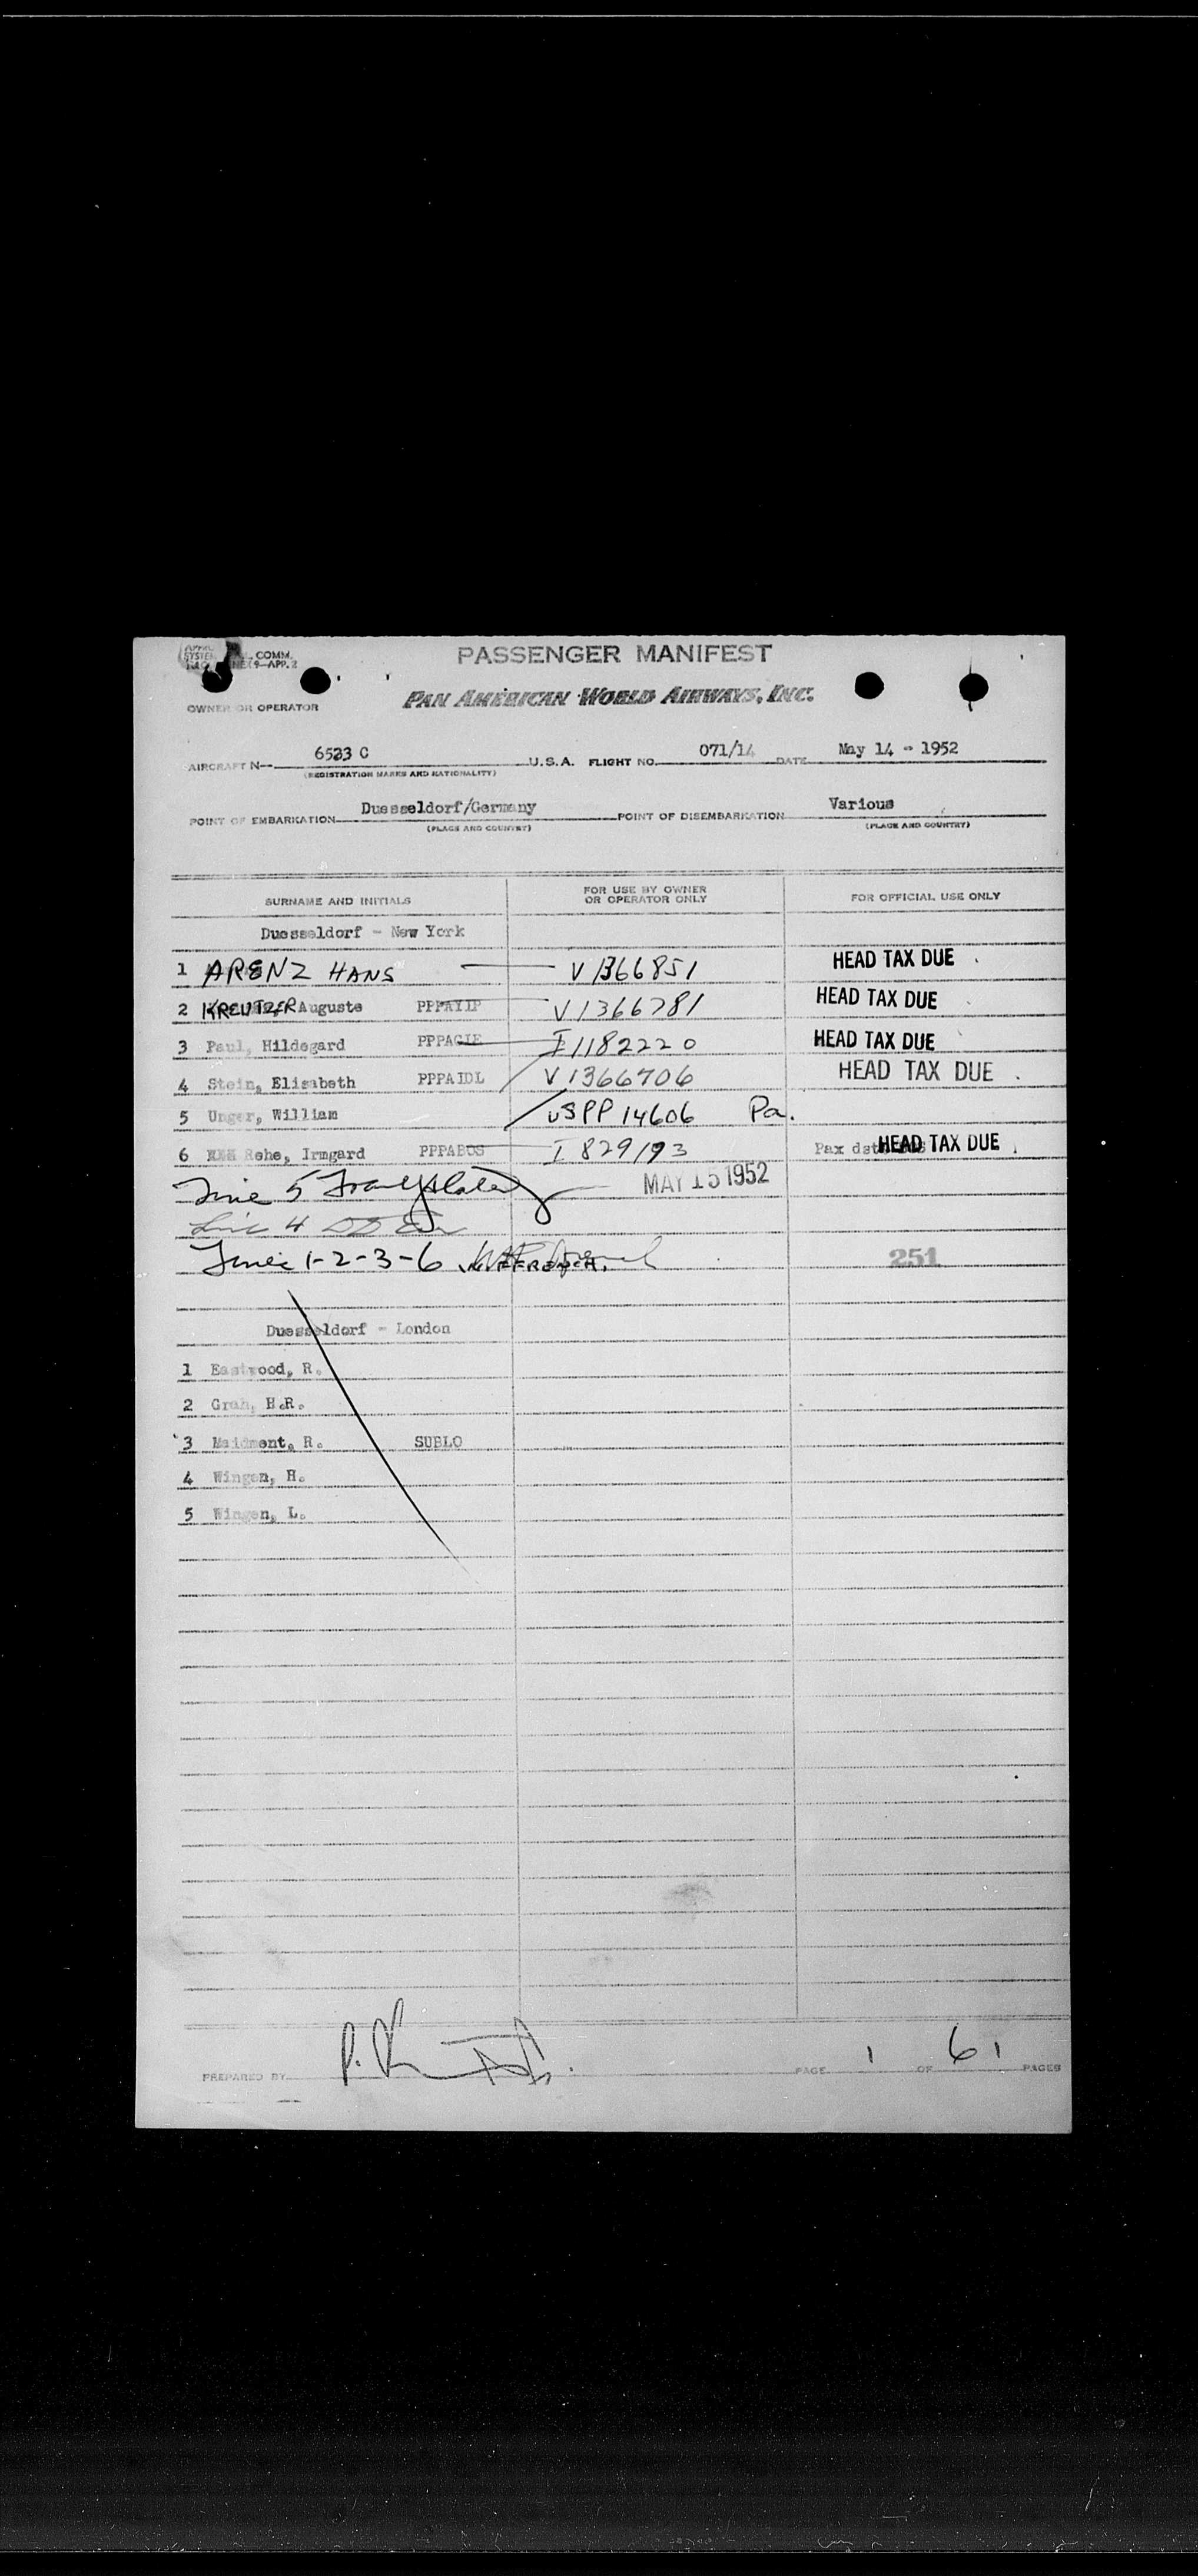 COMM.
9-APP. 2
PASSENGER MANIFEST
PAN AMERICAN WORLD AIRWAYS, INC.
OWNER OR OPERATOR
AIRCRAFT N-- 6523 C U.S.A. FLIGHT NO. 071/14 DATE May 14 - 1952
(REGISTRATION MARKS AND NATIONALITY)
POINT OF EMBARKATION Duesseldorf/Germany POINT OF DISEMBARKATION Various
(PLACE AND COUNTRY) (PLACE AND COUNTRY)
SURNAME AND INITIALS FOR USE BY OWNER OR OPERATOR ONLY FOR OFFICIAL USE ONLY
Duesseldorf - New York
1 ARENZ HANS V 1366851 HEAD TAX DUE
2 KREUTZER Auguste PPPAYIP V 1366781 HEAD TAX DUE
3 Paul, Hildegard PPPAGIE I 1182220 HEAD TAX DUE
4 Stein, Elisabeth PPPAIDL V 1366706 HEAD TAX DUE
5 Unger, William USPP 14606 Pa.
6 Rehe, Irmgard PPPABUS I 829193 Pax HEAD TAX DUE
Line 5 MAY 15 1952
Line 4
Lines 1-2-3-6 251
Duesseldorf - London
1 Eastwood, R.
2 Grah, H.R.
3 Maidment, R. SUBLO
4 Wingen, H.
5 Wingen, L.
PREPARED BY PAGE 1 OF 61 PAGES